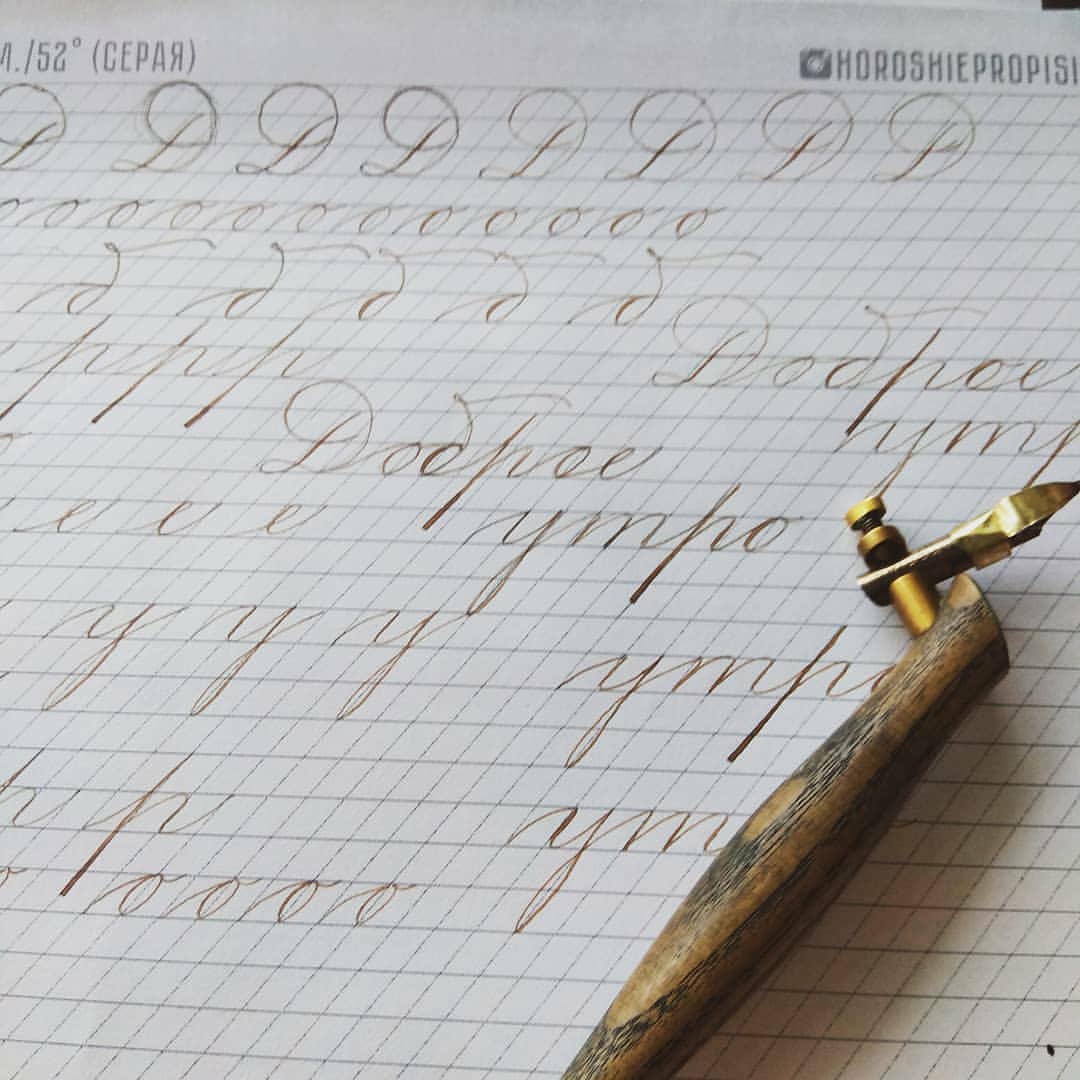 М./52° (СЕРАЯ) HOROSHIEPROPISI
Д Д Д Д Д Д Д Д
о о о о о о о о о о о о
б б б б б
р р р Доброе
Доброе утр
е е е утро
у у у утр
р р ут
о о о о о